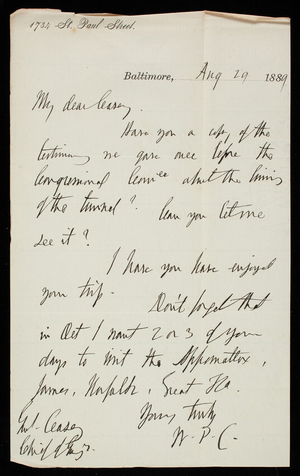 1734 St. Paul Street.
Baltimore, Aug 29 1889
My dear Casey.
Have you a copy of the
testimony we gave once before the
Congressional Com'ee about the lining
of the tunnel? Can you let me
see it?
I hope you have enjoyed
your trip. Don't forget that
in Oct I want 2 or 3 of your
days to visit the Appomattox,
James, Norfolk,
Yours truly
W. P. C.
Casey
Chief of Eng'rs.